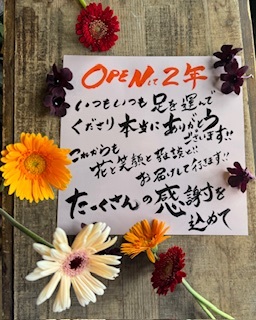 OPENして2年
いつもいつも 足を運んで
くださり 本当に ありがとう
ございます!!
これからも
花と笑顔と雑談と!!
お届けして行きます!!
たーくさんの感謝を
込めて